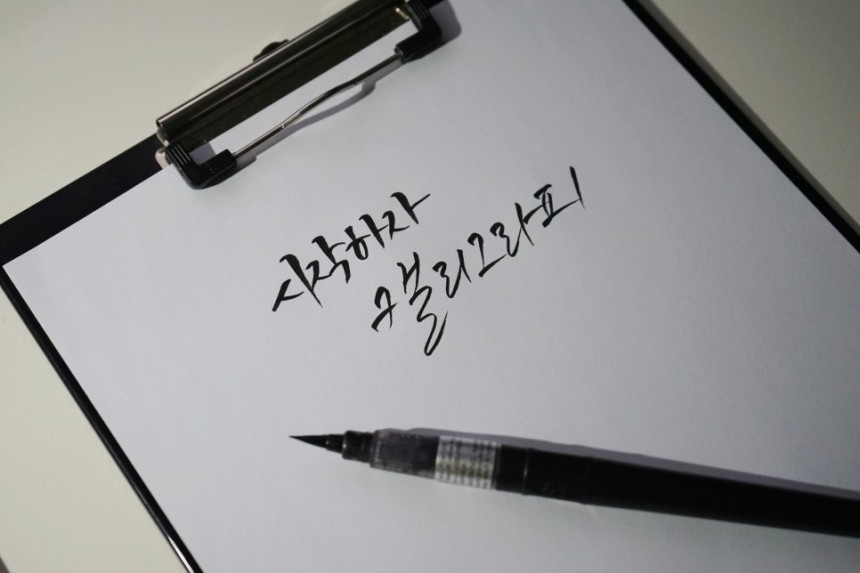 시작하자
캘리그라피